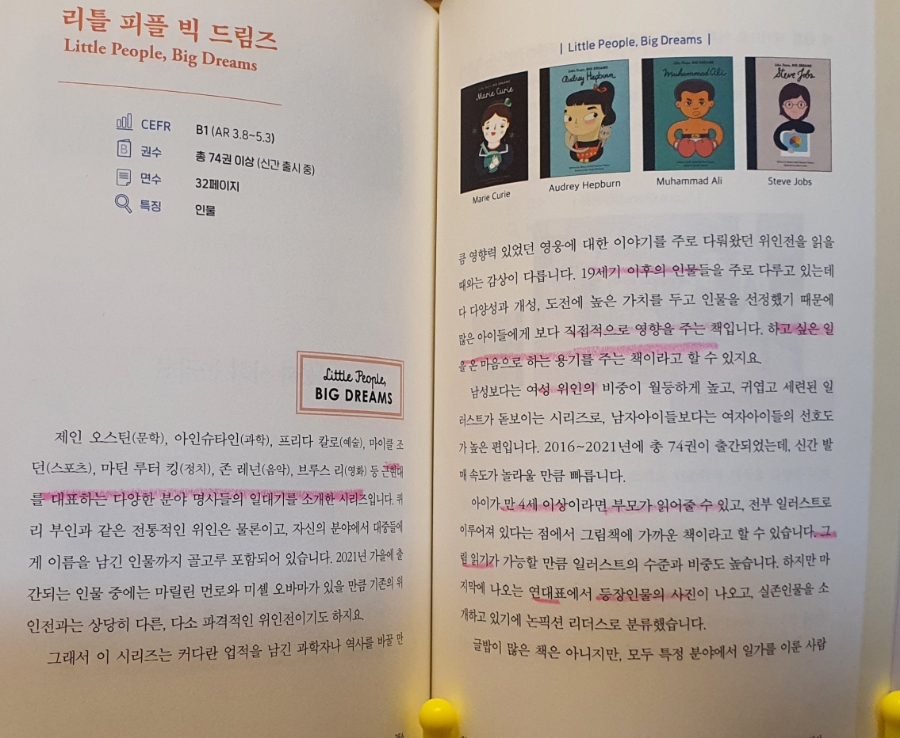 리틀 피플 빅 드림즈
Little People, Big Dreams
CEFR B1 (AR 3.8~5.3)
권수 총 74권 이상 (신간 출시 중)
면수 32페이지
특징 인물
Little People,
BIG DREAMS
제인 오스틴(문학), 아인슈타인(과학), 프리다 칼로(예술), 마이클 조
던(스포츠), 마틴 루터 킹(정치), 존 레넌(음악), 브루스 리(영화) 등 근현대
를 대표하는 다양한 분야 명사들의 일대기를 소개한 시리즈입니다. 퀴
리 부인과 같은 전통적인 위인은 물론이고, 자신의 분야에서 대중들에
게 이름을 남긴 인물까지 골고루 포함되어 있습니다. 2021년 가을에 출
간되는 인물 중에는 마릴린 먼로와 미셸 오바마가 있을 만큼 기존의 위
인전과는 상당히 다른, 다소 파격적인 위인전이기도 하지요.
그래서 이 시리즈는 커다란 업적을 남긴 과학자나 역사를 바꿀 만
| Little People, Big Dreams |
Marie Curie
Audrey Hepburn
Muhammad Ali
Steve Jobs
Marie Curie
Audrey Hepburn
Muhammad Ali
Steve Jobs
큼 영향력 있었던 영웅에 대한 이야기를 주로 다뤄왔던 위인전을 읽을
때와는 감상이 다릅니다. 19세기 이후의 인물들을 주로 다루고 있는데
다 다양성과 개성, 도전에 높은 가치를 두고 인물을 선정했기 때문에
많은 아이들에게 보다 직접적으로 영향을 주는 책입니다. 하고 싶은 일
을 온 마음으로 하는 용기를 주는 책이라고 할 수 있지요.
남성보다는 여성 위인의 비중이 월등하게 높고, 귀엽고 세련된 일
러스트가 돋보이는 시리즈로, 남자아이들보다는 여자아이들의 선호도
가 높은 편입니다. 2016~2021년에 총 74권이 출간되었는데, 신간 발
매 속도가 놀라울 만큼 빠릅니다.
아이가 만 4세 이상이라면 부모가 읽어줄 수 있고, 전부 일러스트로
이루어져 있다는 점에서 그림책에 가까운 책이라고 할 수 있습니다. 그
림 읽기가 가능할 만큼 일러스트의 수준과 비중도 높습니다. 하지만 마
지막에 나오는 연대표에서 등장인물의 사진이 나오고, 실존인물을 소
개하고 있기에 논픽션 리더스로 분류했습니다.
글밥이 많은 책은 아니지만, 모두 특정 분야에서 일가를 이룬 사람